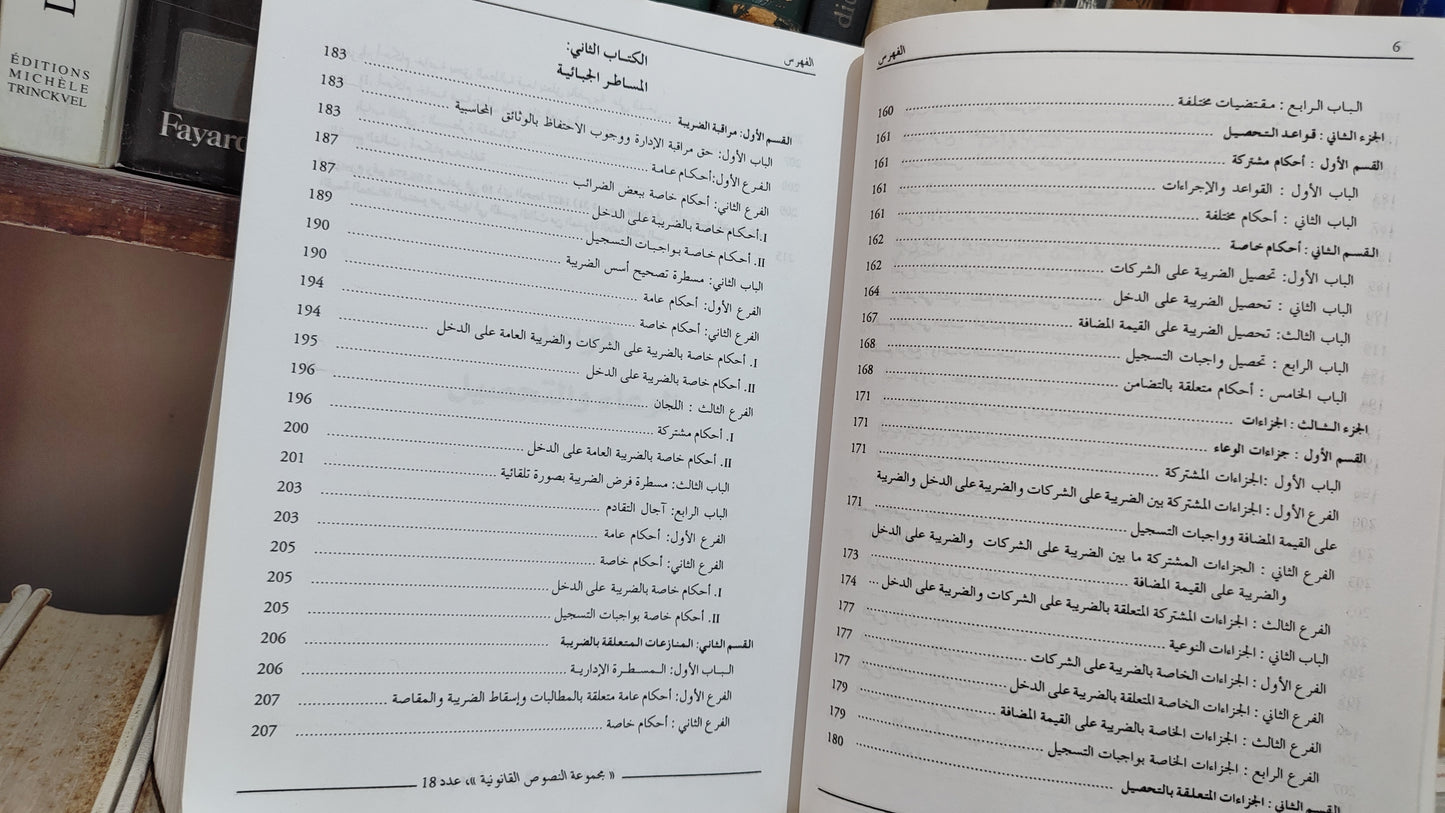 6 الفهرس
الباب الرابع : مقتضيات مختلفة ........ 160
الجزء الثاني : قواعد التحصيل ........ 161
القسم الأول : أحكام مشتركة ........ 161
الباب الأول : القواعد والإجراءات ........ 161
الباب الثاني : أحكام مختلفة ........ 161
القسم الثاني : أحكام خاصة ........ 162
الباب الأول: تحصيل الضريبة على الشركات ........ 162
الباب الثاني : تحصيل الضريبة على الدخل ........ 164
الباب الثالث: تحصيل الضريبة على القيمة المضافة ........ 167
الباب الرابع : تحصيل واجبات التسجيل ........ 168
الباب الخامس : أحكام متعلقة بالتضامن ........ 168
الجزء الثالث : الجزاءات ........ 171
القسم الأول : جزاءات الوعاء ........ 171
الباب الأول :الجزاءات المشتركة ........ 171
الفرع الأول : الجزاءات المشتركة بين الضريبة على الشركات والضريبة على الدخل والضريبة
على القيمة المضافة وواجبات التسجيل ........ 171
الفرع الثاني : الجزاءات المشتركة ما بين الضريبة على الشركات والضريبة على الدخل
والضريبة على القيمة المضافة ........ 173
الفرع الثالث : الجزاءات المشتركة المتعلقة بالضريبة على الشركات والضريبة على الدخل ... 174
الباب الثاني : الجزاءات النوعية ........ 177
الفرع الأول : الجزاءات الخاصة بالضريبة على الشركات ........ 177
الفرع الثاني : الجزاءات الخاصة المتعلقة بالضريبة على الدخل ........ 177
الفرع الثالث : الجزاءات الخاصة بالضريبة على القيمة المضافة ........ 179
الفرع الرابع : الجزاءات الخاصة بواجبات التسجيل ........ 179
القسم الثاني : الجزاءات المتعلقة بالتحصيل ........ 180
الفهرس
الكتاب الثاني:
المساطر الجبائية
القسم الأول: مراقبة الضريبة ........ 183
الباب الأول: حق مراقبة الإدارة ووجوب الاحتفاظ بالوثائق المحاسبية ........ 183
الفرع الأول:أحكام عامة ........ 183
الفرع الثاني: أحكام خاصة ببعض الضرائب ........ 187
I.أحكام خاصة بالضريبة على الدخل ........ 187
II. أحكام خاصة بواجبات التسجيل ........ 189
الباب الثاني: مسطرة تصحيح أسس الضريبة ........ 190
الفرع الأول: أحكام عامة ........ 190
الفرع الثاني: أحكام خاصة ........ 194
I. أحكام خاصة بالضريبة على الشركات والضريبة العامة على الدخل ........ 194
II. أحكام خاصة بالضريبة على الدخل ........ 195
الفرع الثالث : اللجان ........ 196
I. أحكام مشتركة ........ 196
II. أحكام خاصة بالضريبة العامة على الدخل ........ 200
الباب الثالث: مسطرة فرض الضريبة بصورة تلقائية ........ 201
الباب الرابع: آجال التقادم ........ 203
الفرع الأول: أحكام عامة ........ 203
الفرع الثاني: أحكام خاصة ........ 205
I. أحكام خاصة بالضريبة على الدخل ........ 205
II. أحكام خاصة بواجبات التسجيل ........ 205
القسم الثاني: المنازعات المتعلقة بالضريبة ........ 206
الباب الأول: المسطرة الإدارية ........ 206
الفرع الأول: أحكام عامة متعلقة بالمطالبات وإسقاط الضريبة والمقاصة ........ 207
الفرع الثاني : أحكام خاصة ........ 207
« مجموعة النصوص القانونية »، عدد 18
ÉDITIONS
MICHÈLE
TRINCKVEL
Fayard